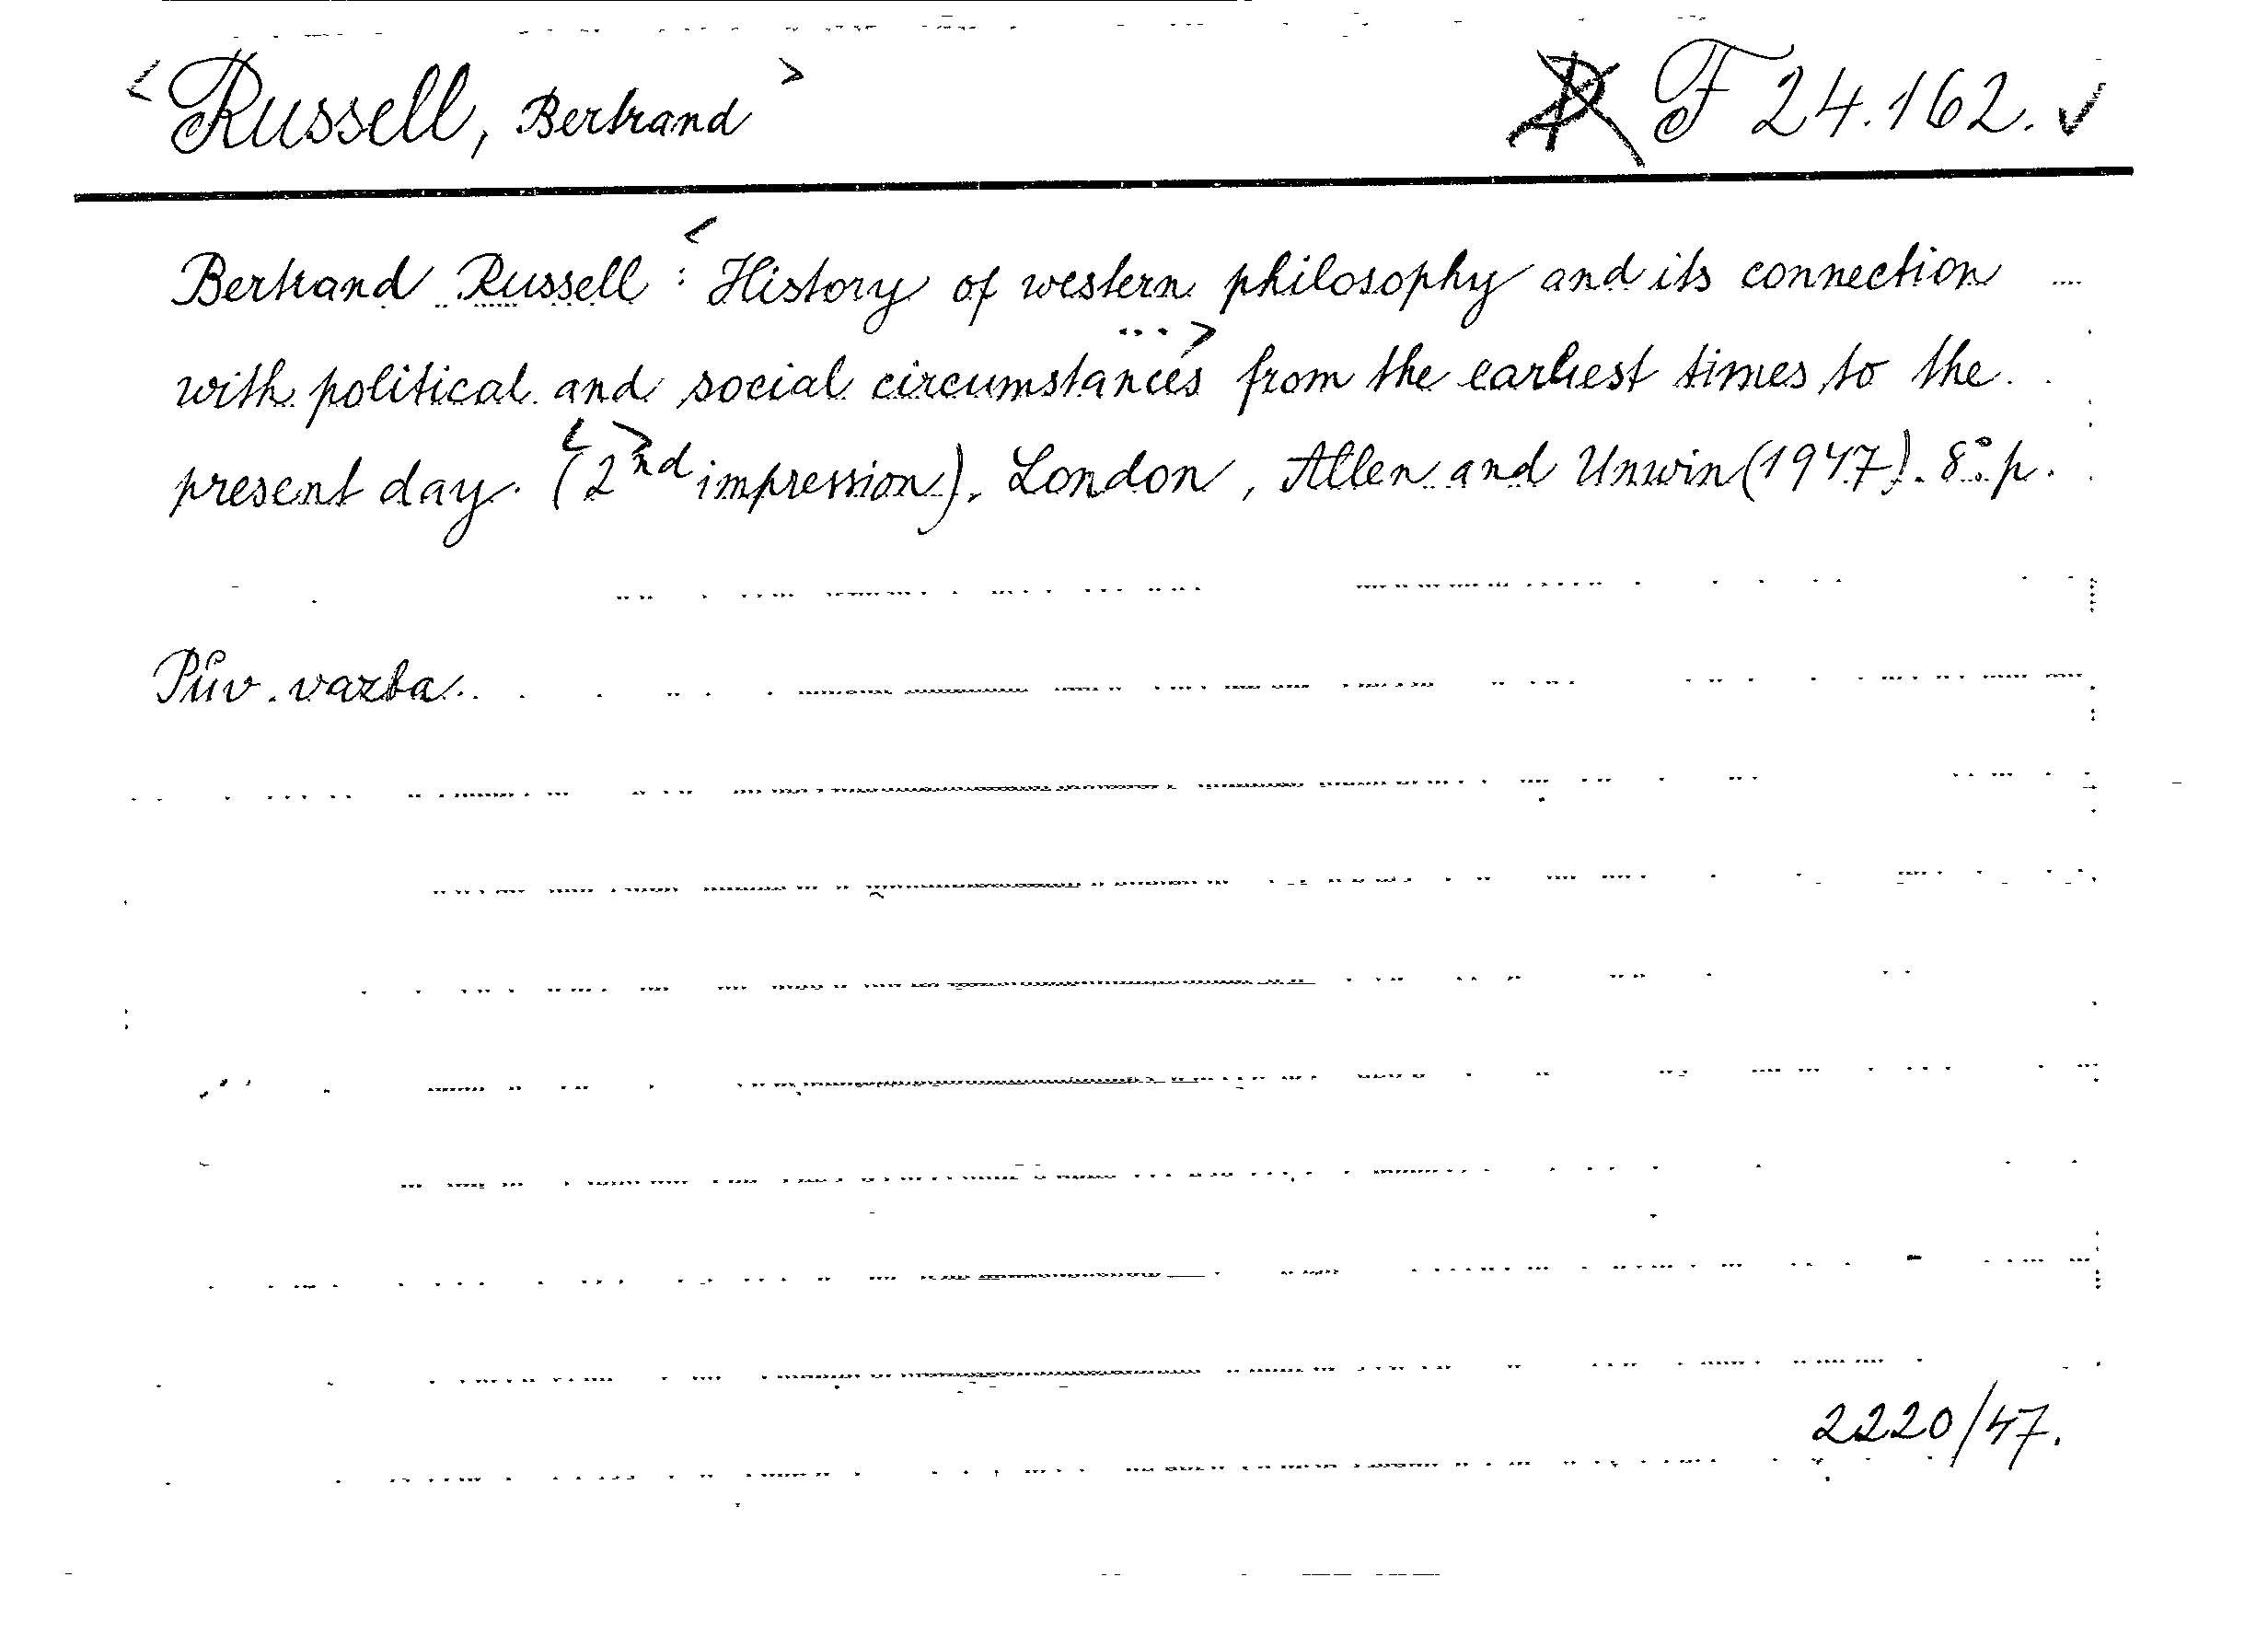 < Russell, Bertrand > F 24.162. ✓
Bertrand Russell : < History of western philosophy and its connection
with political and social circumstances ...> from the earliest times to the
present day. (<2nd> impression). London, Allen and Unwin (1947). 8° p.
Pův. vazba.
2220/47.